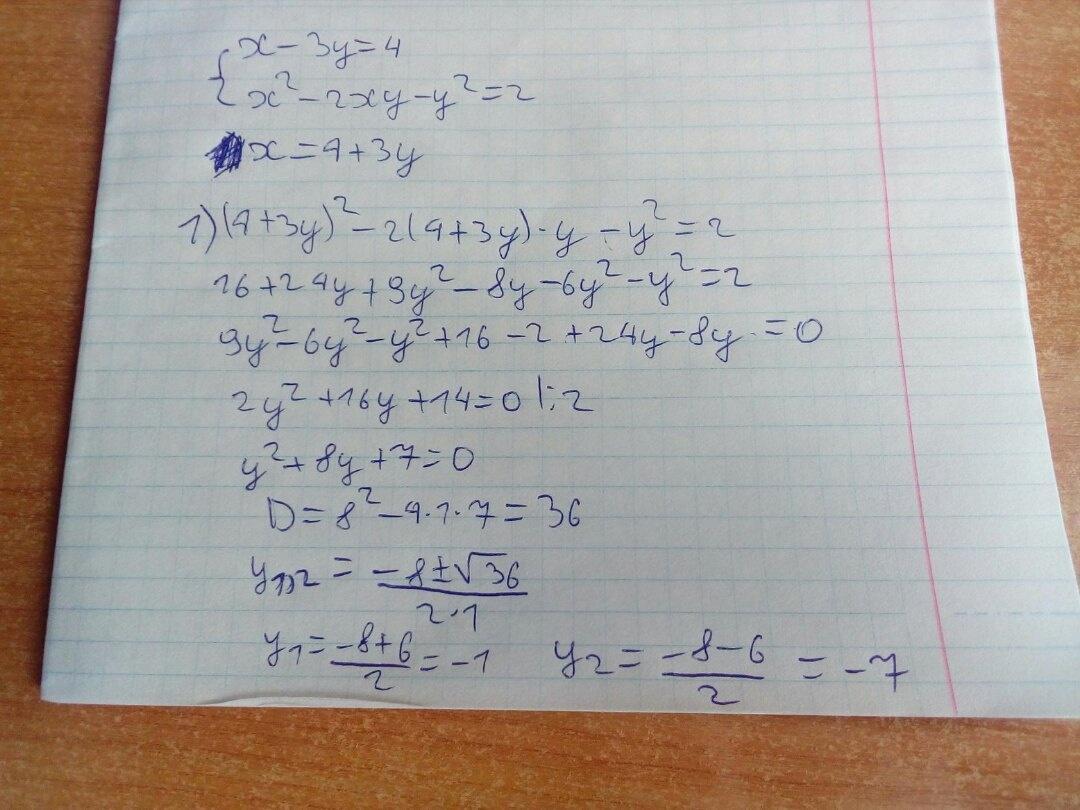 x-3y=4
x²-2xy-y²=2
x=4+3y
1)(4+3y)²-2(4+3y)·y-y²=2
16+24y+9y²-8y-6y²-y²=2
9y²-6y²-y²+16-2+24y-8y=0
2y²+16y+14=0 |:2
y²+8y+7=0
D=8²-4·1·7=36
y1,2 = (-8±√36)/(2·1)
y1=(-8+6)/2=-1 y2=(-8-6)/2=-7